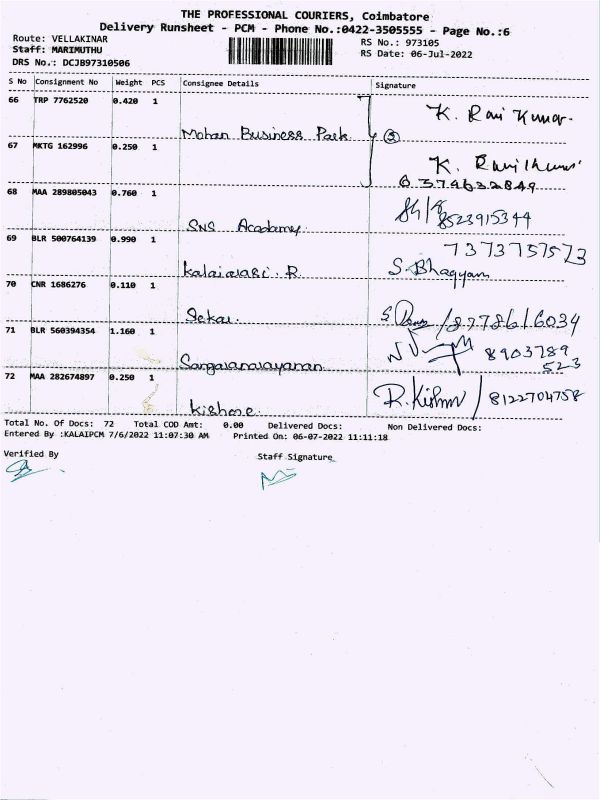 THE PROFESSIONAL COURIERS, Coimbatore
Delivery Runsheet - PCM - Phone No.:0422-3505555 - Page No.:6
Route: VELLAKINAR
RS No.: 973105
Staff: MARIMUTHU
RS Date: 06-Jul-2022
DRS No.: DCJB97310506
S No Consignment No Weight PCS Consignee Details Signature
66 TRP 7762520 0.420 1
K. Ravi Kumar.
Mohan Business Park
67 MKTG 162996 0.250 1
K.
6379632849
68 MAA 289805043 0.760 1
SNS Academy
8523915344
69 BLR 500764139 0.990 1
7373757573
Kalaivasi. R
S. Bhagyam
70 CNR 1686276 0.110 1
Sekar.
/8778616034
71 BLR 560394354 1.160 1
8903789
523
72 MAA 282674897 0.250 1
Kishore.
R. Kishor / 8122704758
Total No. Of Docs: 72 Total COD Amt: 0.00 Delivered Docs: Non Delivered Docs:
Entered By :KALAIPCM 7/6/2022 11:07:30 AM Printed On: 06-07-2022 11:11:18
Verified By
Staff Signature